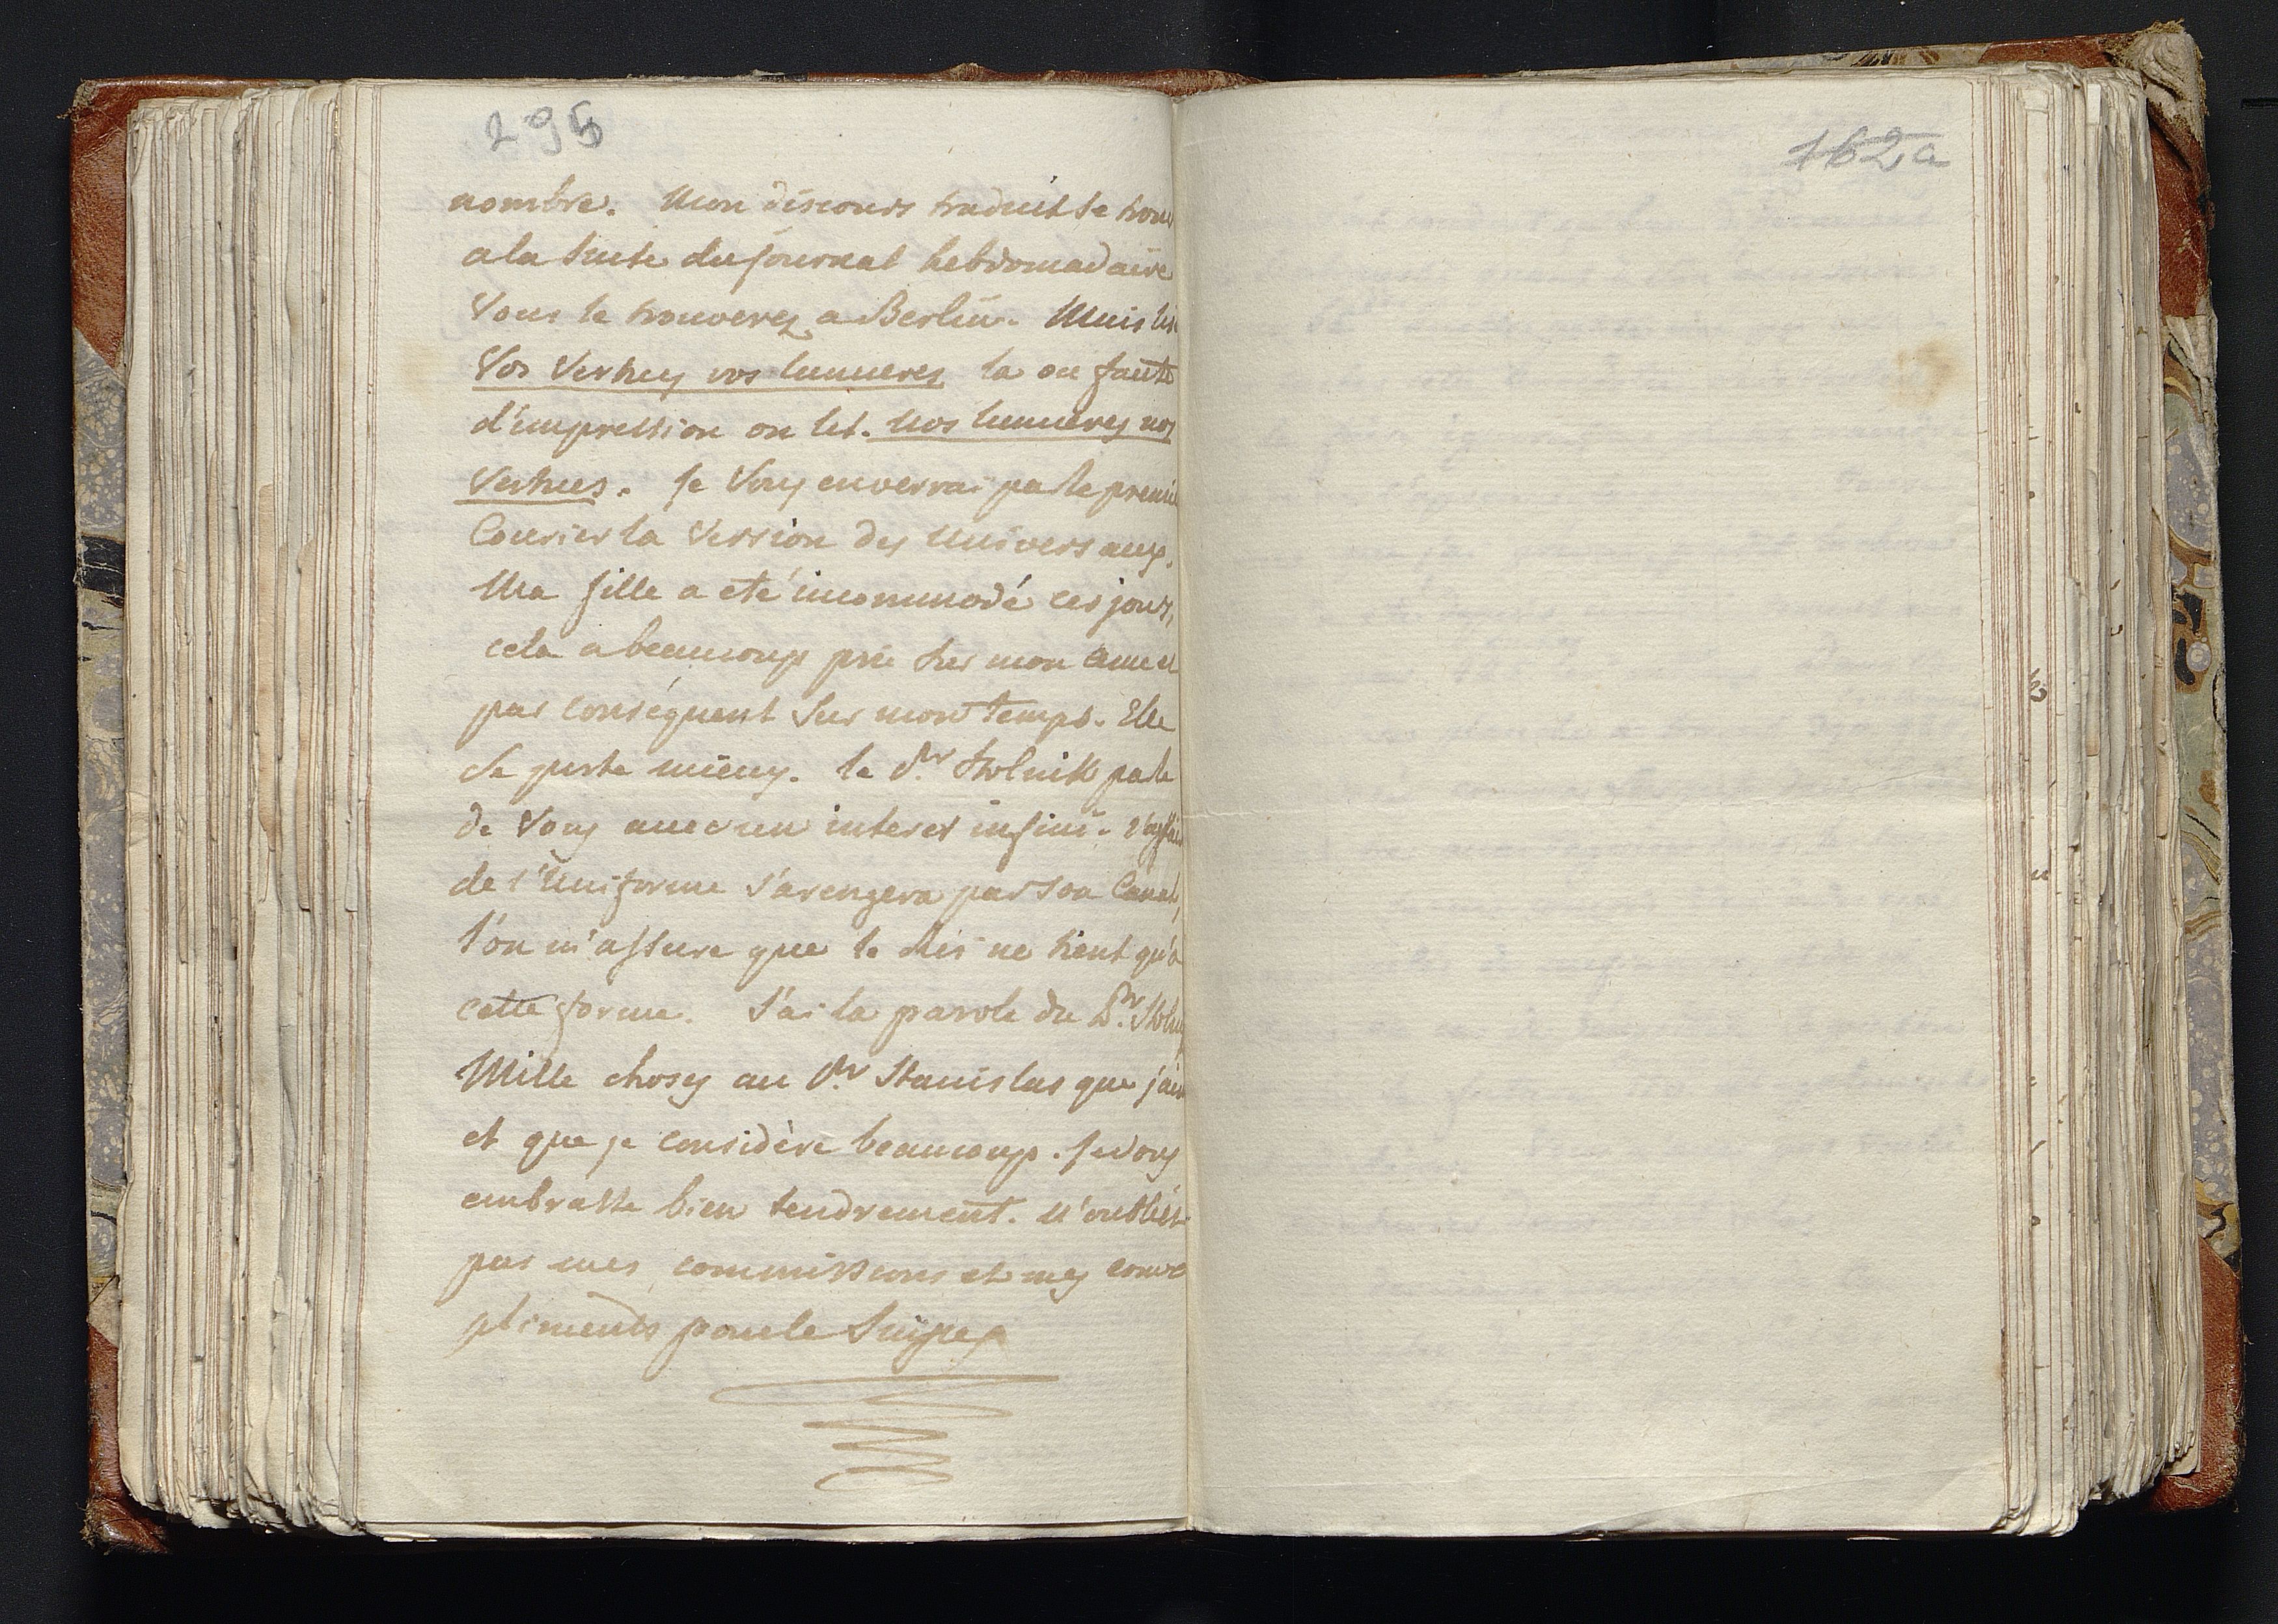 295
162a
nombre. Mon discours traduit se trouv
a la suite du journal hebdomadaire
Vous le trouverez a Berlin. Mais lis
Vos Vertus vos lumieres la ou faute
d'impression on lit. nos lumieres nos
Vertues. Je Vous enverrai par le premie
Courier la Version des Universaux.
Ma fille a eté incommodé ces jours,
cela a beaucoup pris sur mon ame et
par conséquent sur mon temps. Elle
se porte mieux. le Pr Stolnik parle
de Vous avec un interet infini. l'affair
de l'Uniforme s'arengera par son Canal,
l'on m'assure que le Roi ne tient qu'a
cette forme. J'ai la parole du Pr. Stoln
Mille choses au Pr Stanislas que j'aim
et que je considère beaucoup. Je Vous
embrasse bien tendrement. N'oubliés
pas mes commissions et mes com
pliments pour le